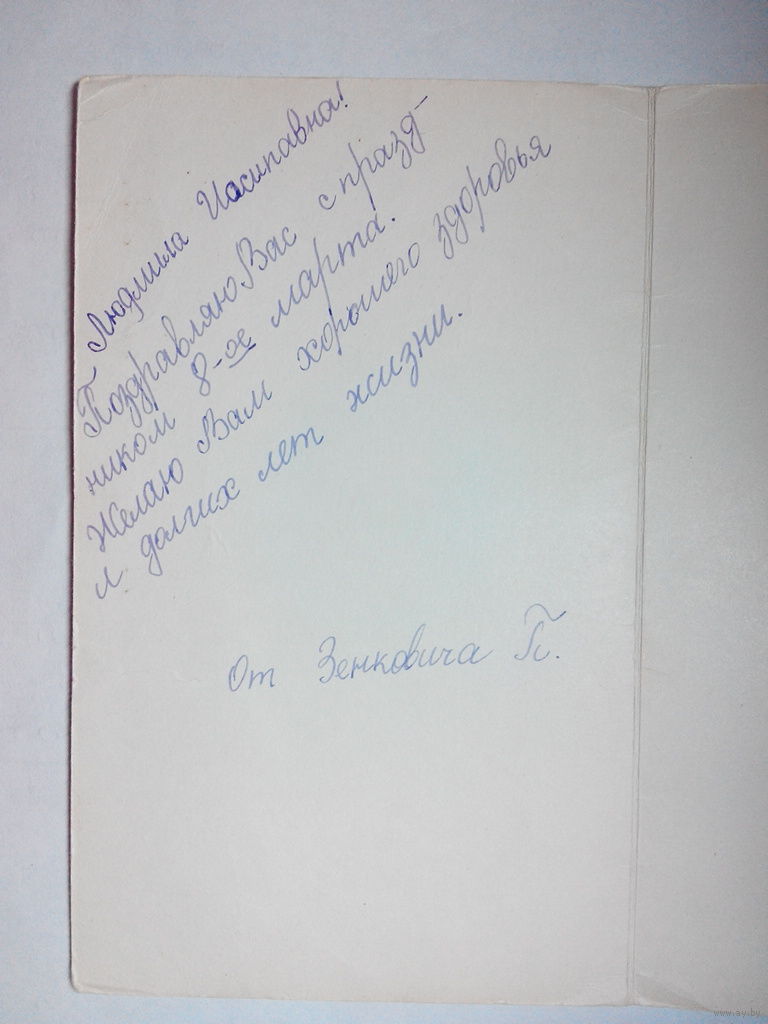 Людмила Иасипавна!
Поздравляю Вас с празд-
ником 8-ое марта.
Желаю Вам хорошего здоровья
и долгих лет жизни.
От Зенковича П.
www.ay.by